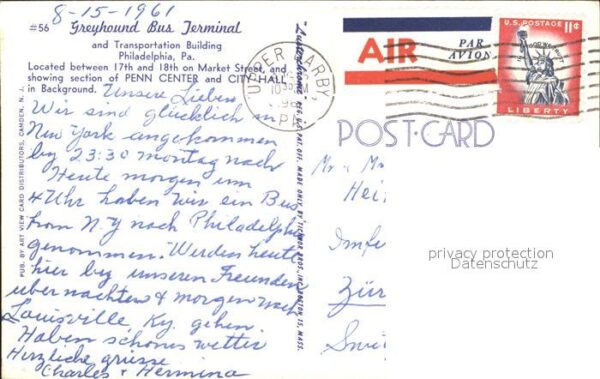 8-15-1961
#56 Greyhound Bus Terminal
and Transportation Building
Philadelphia, Pa.
Located between 17th and 18th on Market Street, and
showing section of PENN CENTER and CITY HALL
in Background.
Unsere Lieben
Wir sind glücklich in
New York angekommen
by 23:30 montag nach
Heute morgen um
4 Uhr haben wir ein Bus
from N.Y nach Philadelphia
genommen. Werden heute
hier by unseren Freunden
ubernachten & morgen nach
Louisville, Ky. gehen.
Haben schones wetter
Herzliche grüsse
Charles + Hermina
PUB. BY ART VIEW CARD DISTRIBUTORS, CAMDEN, N. J.
"Lusterchrome" REG. U.S. PAT. OFF. MADE ONLY BY TICHNOR BROS., INC., BOSTON 15, MASS.
UPPER DARBY
PA
AIR
PAR
AVION
U.S. POSTAGE 11¢
IN GOD WE TRUST
LIBERTY
POST-CARD
Mr + M
Hei
Imfe
Zür
Swi
privacy protection
Datenschutz